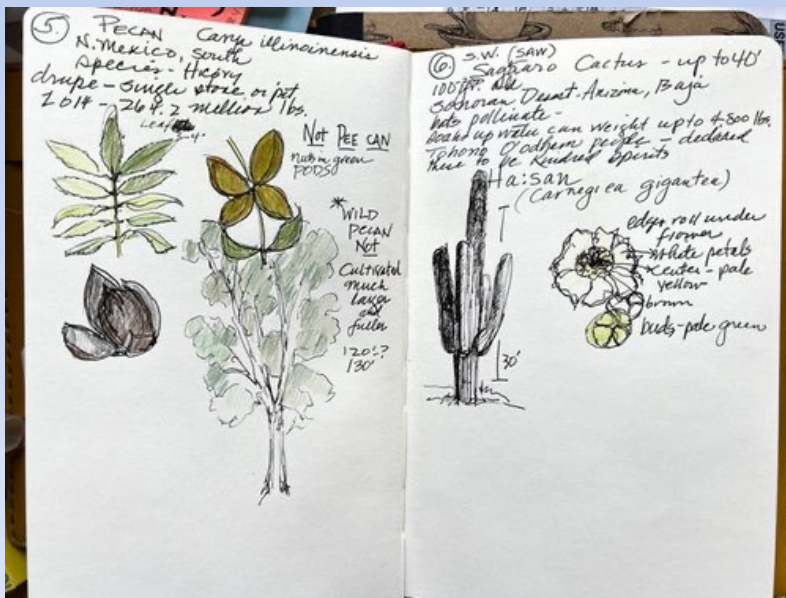 5. PECAN Carya illinoinensis
N. Mexico, South
Species - Hickory
drupe - single stone or pit
2014 - 264.2 million lbs.
Leaf
2-4"
Not PEE CAN
nuts in green
PODS
* WILD
PECAN
NOT
Cultivated
much
larger
and
fuller
120'?
130'
6. S.W. (SAW)
Saguaro Cactus - up to 40'
100 yr. old
Sonoran Desert. Arizona, Baja
bats pollinate -
soaks up water can weight up to 4,800 lbs.
Tohono O'odham people - declared
these to be Kindred Spirits
Ha:san
(Carnegiea gigantea)
30'
edges roll under
flower
white petals
center - pale
yellow
brown
buds - pale green